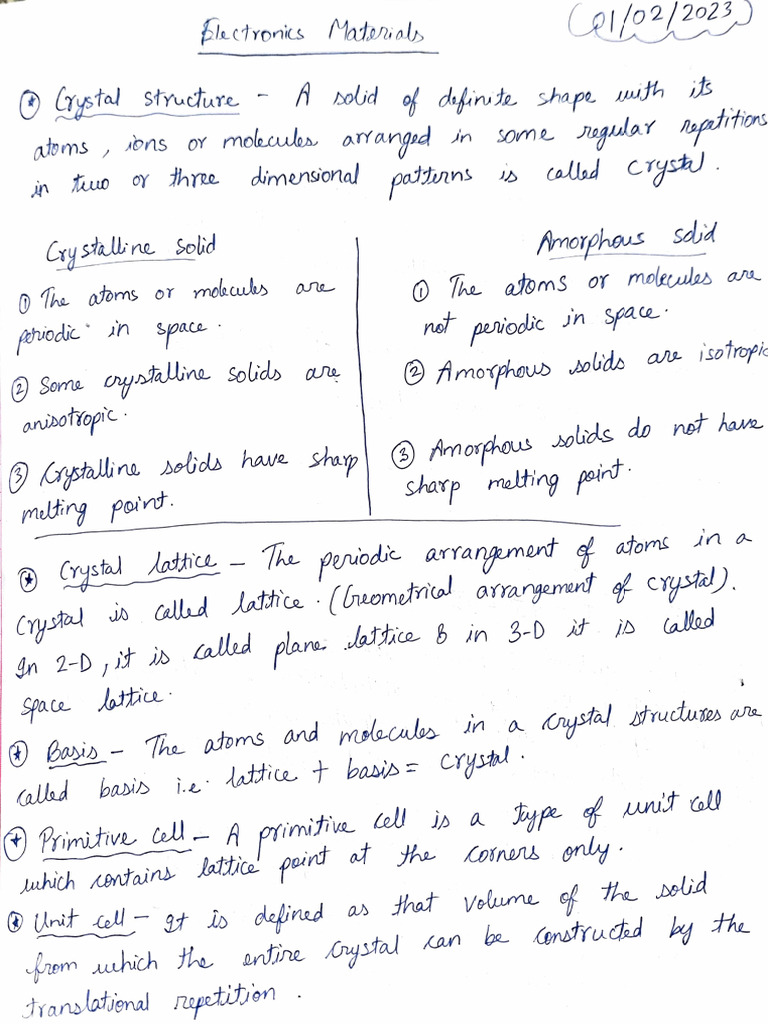 Electronics Materials
01/02/2023
* Crystal structure - A solid of definite shape with its
atoms, ions or molecules arranged in some regular repetitions
in two or three dimensional patterns is called crystal.
Crystalline solid
① The atoms or molecules are
periodic in space.
② Some crystalline solids are
anisotropic.
③ Crystalline solids have sharp
melting point.
Amorphous solid
① The atoms or molecules are
not periodic in space.
② Amorphous solids are isotropic
③ Amorphous solids do not have
sharp melting point.
* Crystal lattice - The periodic arrangement of atoms in a
crystal is called lattice. (Geometrical arrangement of crystal).
In 2-D, it is called plane lattice & in 3-D it is called
space lattice.
* Basis - The atoms and molecules in a crystal structures are
called basis i.e. lattice + basis = crystal.
* Primitive cell - A primitive cell is a type of unit cell
which contains lattice point at the corners only.
* Unit cell - It is defined as that volume of the solid
from which the entire crystal can be constructed by the
translational repetition.